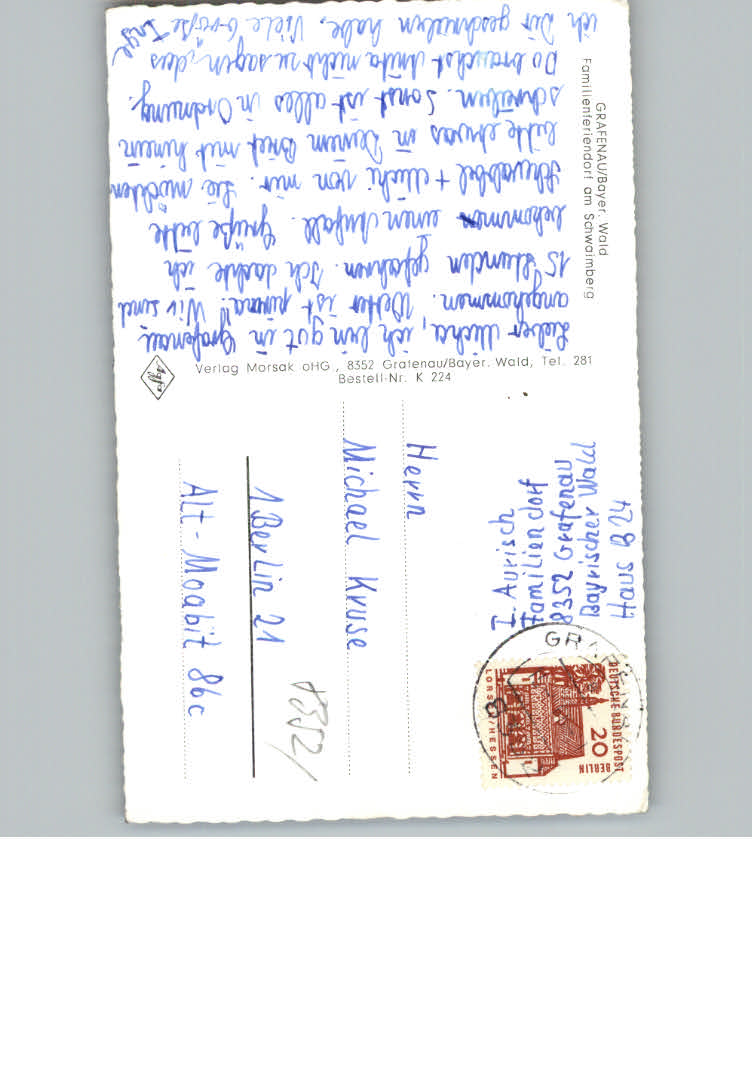 GRAFENAU/Bayer. Wald
Familienferiendorf am Schwaimberg
Lieber Micha, ich bin gut in Grafenau
angekommen. Wetter ist prima! Wir sind
15 Stunden gefahren. Ich dachte ich
bekommen einen Anfall. Grüße bitte
Schwabbel + Michi von mir. Sie möchten
bitte etwas in Deinem Brief mit hinein
schreiben. Sonst ist alles in Ordnung.
Du brauchst Anita nicht zu sagen, dass
ich Dir geschrieben habe. Viele Grüße Inge
Agfa
Verlag Morsak oHG., 8352 Grafenau/Bayer. Wald, Tel. 281
Bestell-Nr. K 224
I. Aurisch
Familiendorf
8352 Grafenau
Bayrischer Wald
Haus B 24
DEUTSCHE BUNDESPOST
BERLIN
20
LORSCH/HESSEN
GRAFENAU
Herrn
Michael Kruse
1 Berlin 21
Alt-Moabit 86c